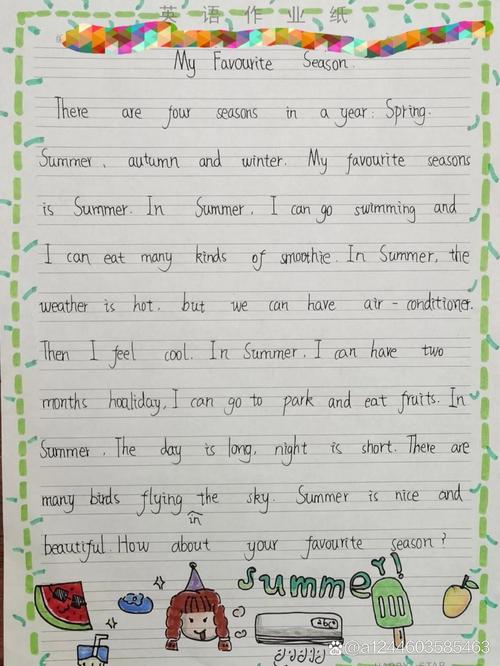 英语作业纸
My Favourite Season.
There are four seasons in a year: Spring.
Summer, autumn and winter. My favourite seasons
is Summer. In Summer, I can go swimming and
I can eat many kinds of smoothie. In Summer, the
weather is hot, but we can have air-conditioner.
Then I feel cool. In Summer, I can have two
months hoaliday, I can go to park and eat fruits. In
Summer, The day is long, night is short. There are
many birds flying in the sky. Summer is nice and
beautiful. How about your favourite season?
summer!
abc
@a1244603585463